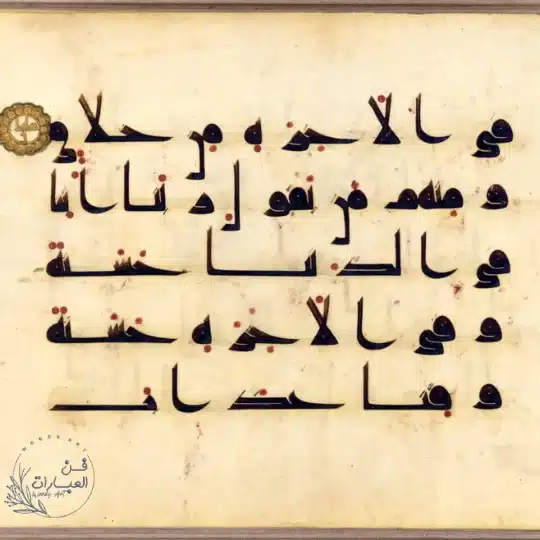 في الآخرة من خلاق
و منهم من يقول ربنا آتنا
في الدنيا حسنة
و في الآخرة حسنة
و قنا عذاب
فن
العبارات
WORDS ART
Words Art